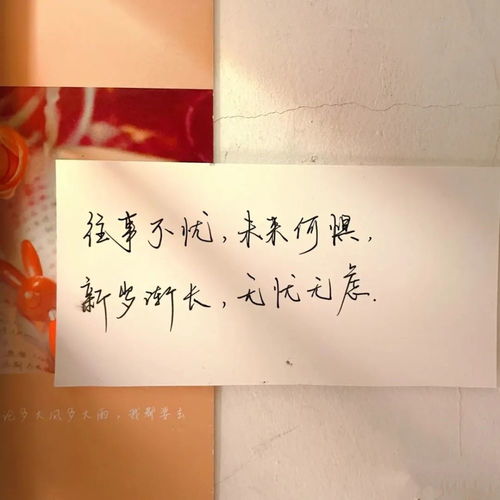 往事不忧，未来何惧，
新岁渐长，无忧无虑.
论多大风多大雨，我都要去